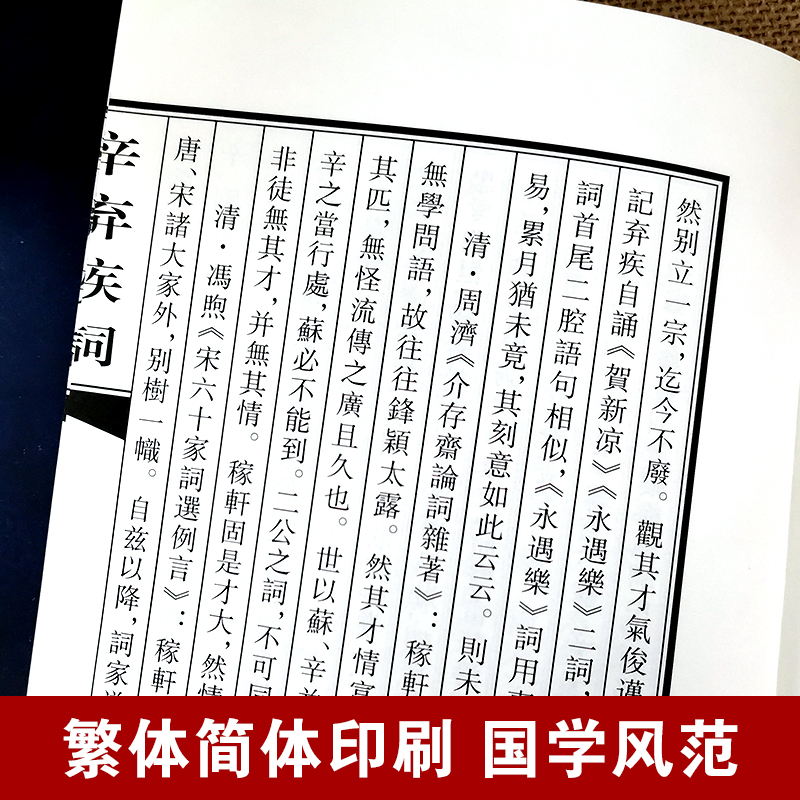 然别立一宗，迄今不廢。觀其才氣俊邁
記弃疾自誦《賀新凉》《永遇樂》二詞，
詞首尾二腔語句相似，《永遇樂》詞用事
易，累月猶未竟，其刻意如此云云。則未
清·周濟《介存齋論詞雜著》：稼軒
無學問語，故往往鋒穎太露。然其才情富
其匹，無怪流傳之廣且久也。世以蘇、辛並
辛之當行處，蘇必不能到。二公之詞，不可同
非徒無其才，并無其情。稼軒固是才大，然情
清·馮煦《宋六十家詞選例言》：稼軒
唐、宋諸大家外，别樹一幟。自兹以降，詞家
辛弃疾詞
繁体简体印刷 国学风范